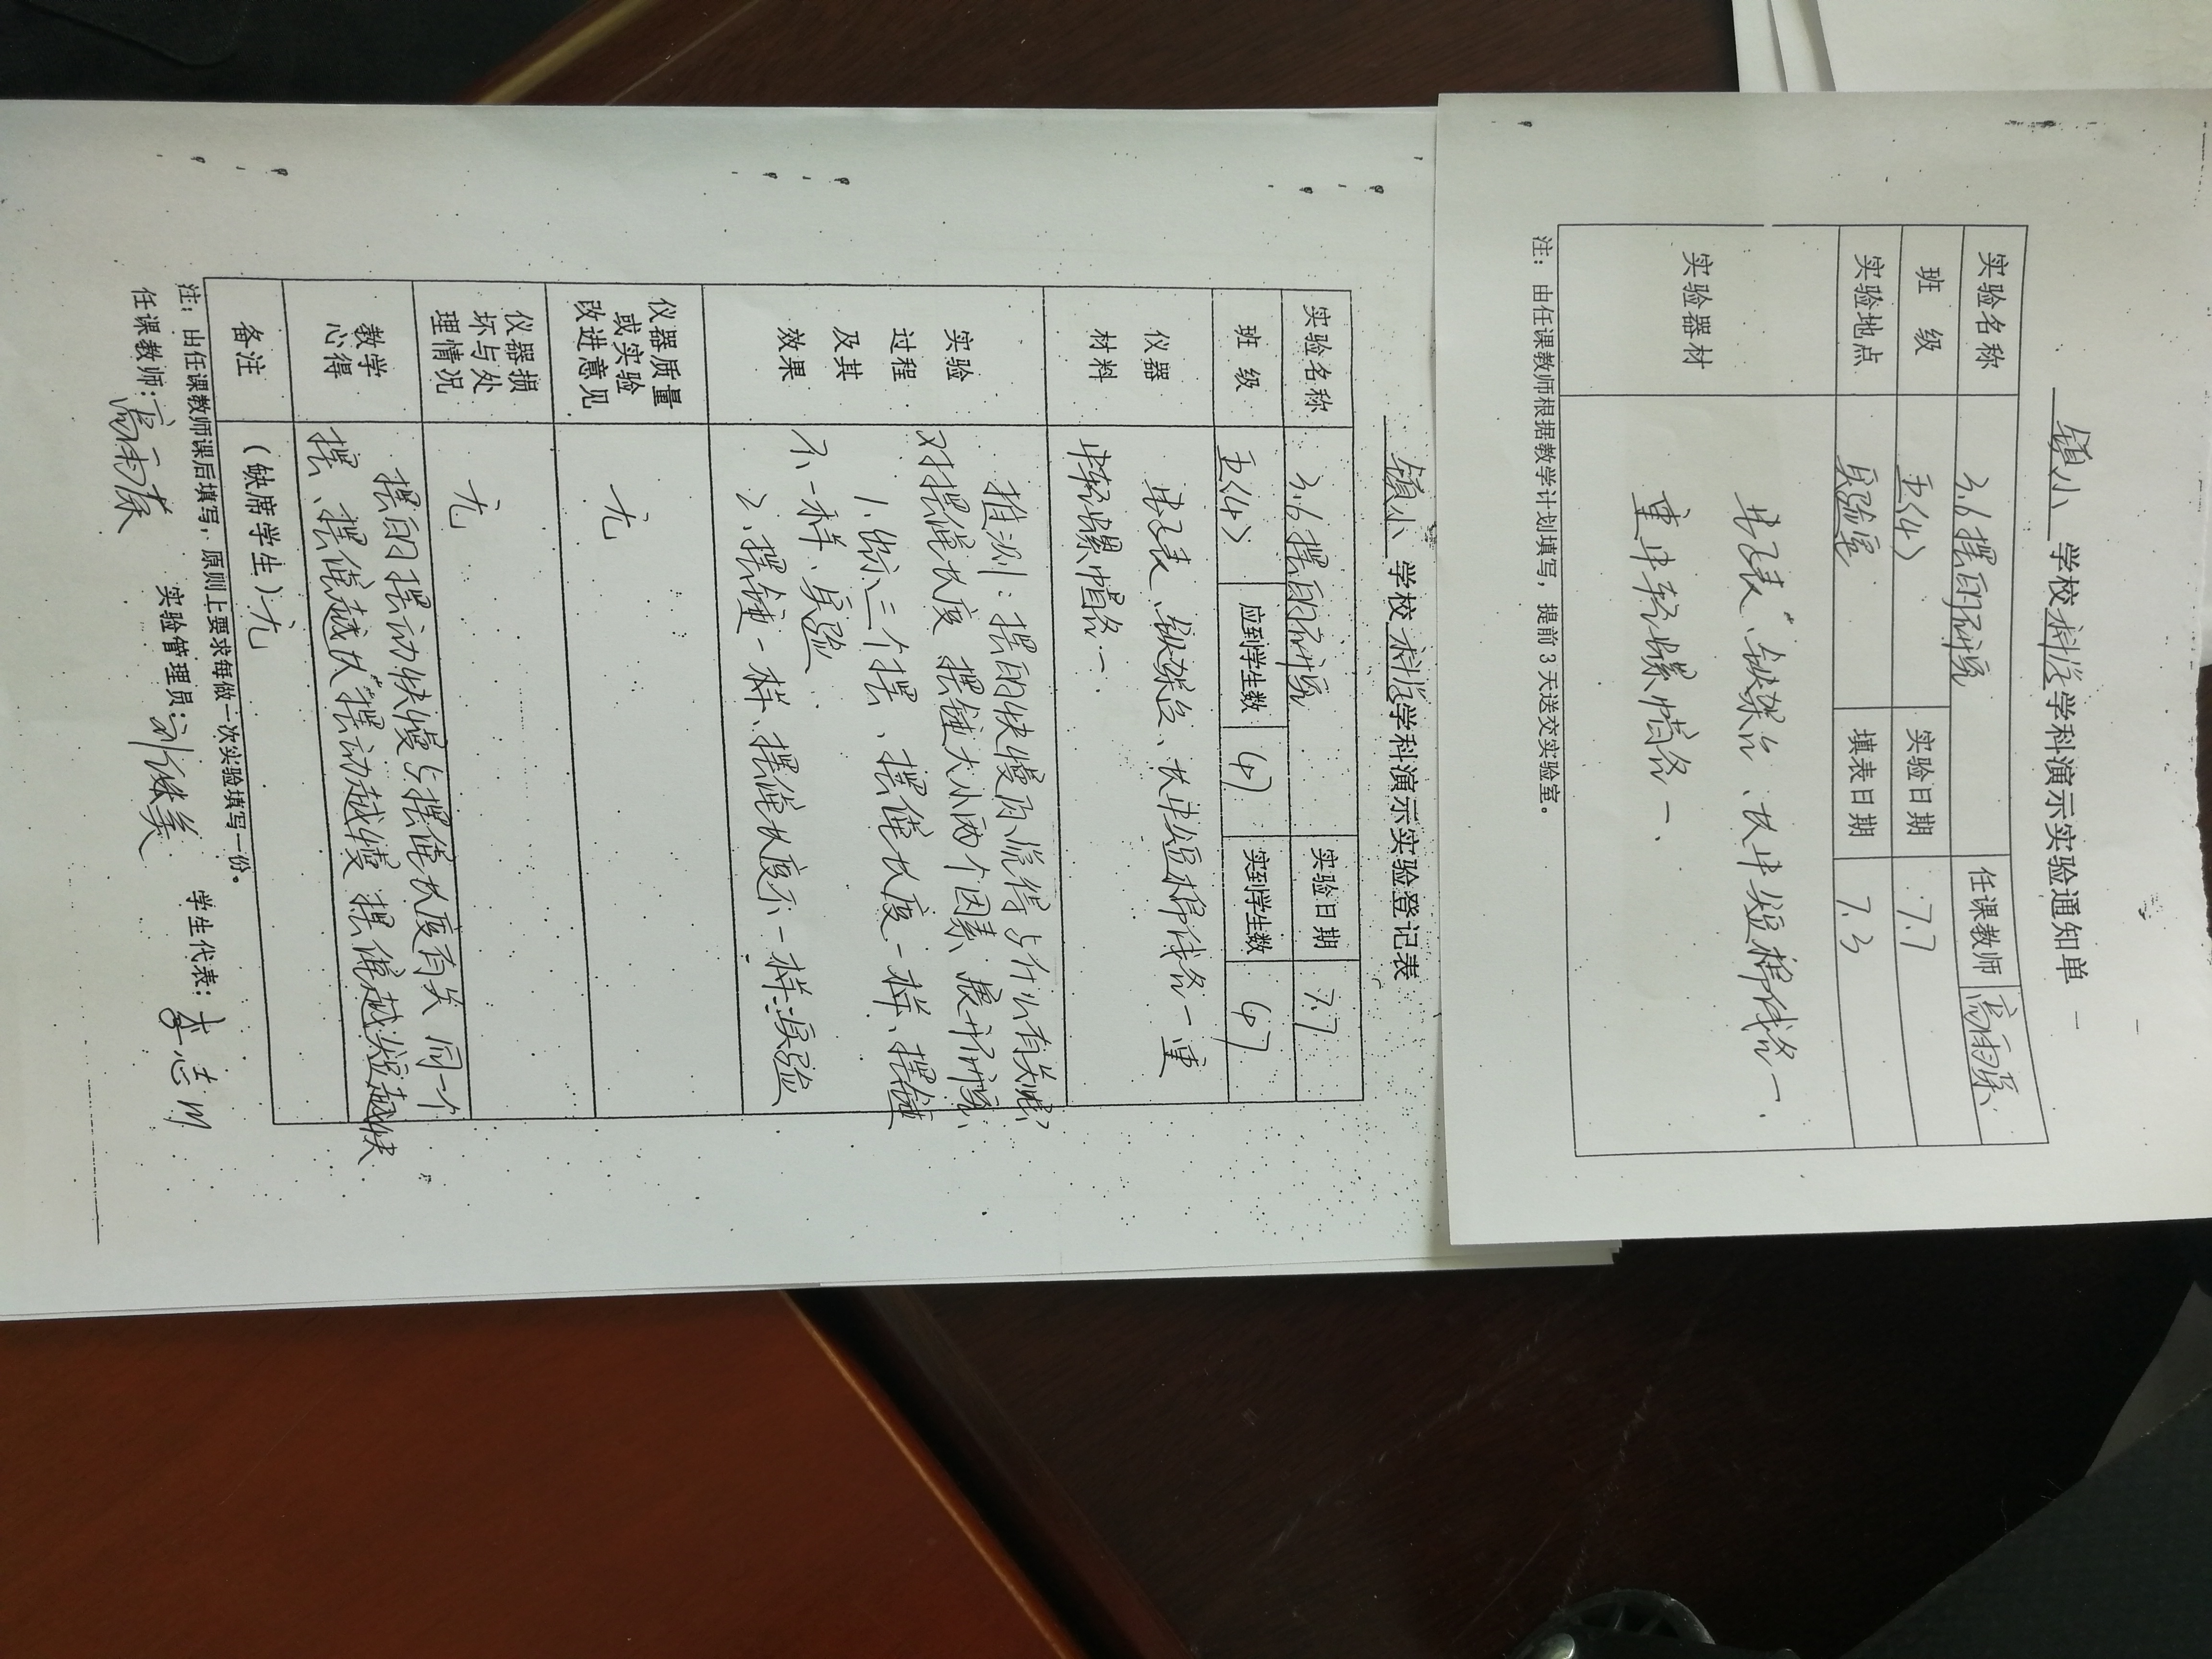 镇小 学校 科学 学科演示实验通知单
实验名称 3.6摆的研究 任课教师
班 级 五(4) 实验日期 7.7
实验地点 实验室 填表日期 7.3
实验器材
长中短棉线各一、
重中轻螺帽各一、
注：由任课教师根据教学计划填写，提前3天送交实验室。
镇小 学校 科学 学科演示实验登记表
实验名称 3.6摆的研究 实验日期 7.7
班 级 五(4) 应到学生数 47 实到学生数 47
仪器 材料
铁架台、长中短棉线各一重
中轻螺帽各一、
实验 过程 及其 效果
推测：摆的快慢
对摆绳长度 摆锤大小两个因素 展开研究
1、做三个摆、摆绳长度一样、摆锤
不一样、实验
2、摆锤一样、摆绳长度不一样实验
仪器质量 或实验 改进意见 无
仪器损 坏与处 理情况 无
教学 心得
摆的摆动快慢与摆绳长度有关 同一个
摆、摆绳越长 摆动越慢 摆绳越短越快
备注 (缺席学生)：无
注：由任课教师课后填写，原则上要求每做一次实验填写一份。
任课教师： 实验管理员： 学生代表：